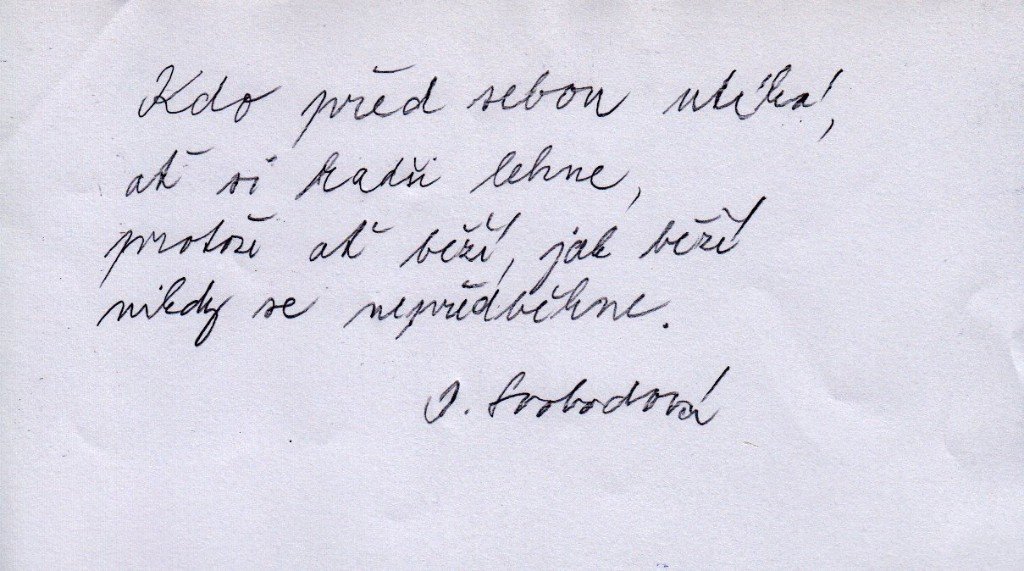 Kdo před sebou utíká,
ať si radši lehne,
protože ať běží, jak běží
nikdy se nepředběhne.
J. Svobodová